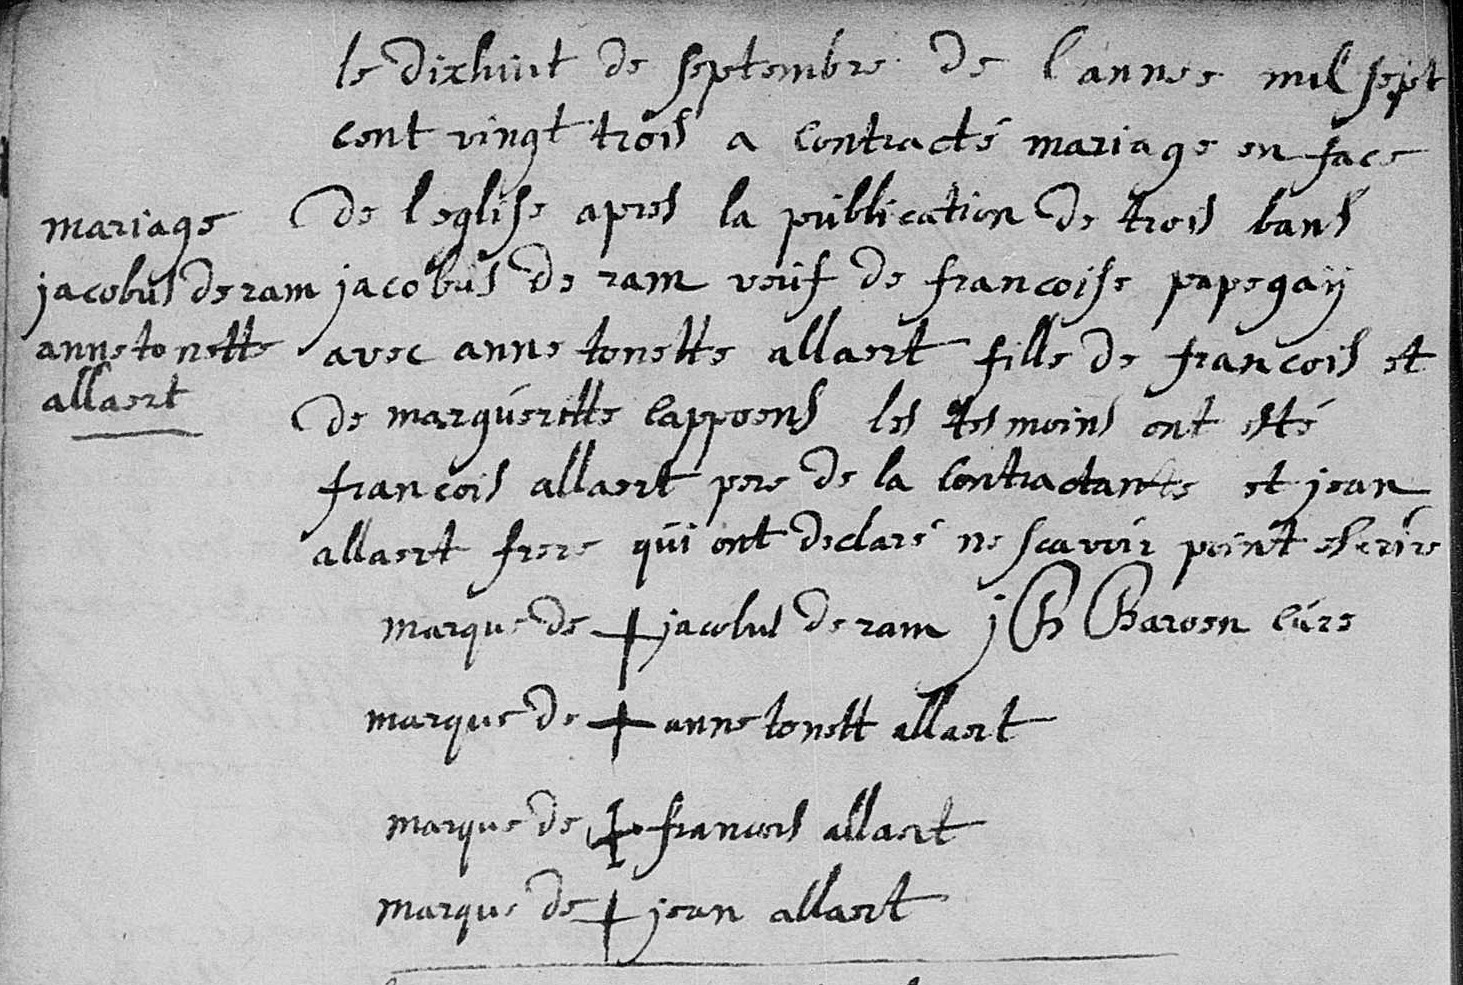 le dixhuit de septembre de l'annee mil sept
cent vingt trois a contracté mariage en face
de l'eglise apres la publication de trois bans
mariage
jacobus de ram
anne tonette
allaert
jacobus de ram veuf de francoise papegaÿ
avec anne tonette allaert fille de francois et
de marguerette cappoens les tesmoins ont esté
francois allaert pere de la contractante et jean
allaert frere qui ont declaré ne scavoir point escrire
marque de + jacobus de ram j B Baroen curé
marque de + anne tonett allaert
marque de + francois allaert
marque de + jean allaert